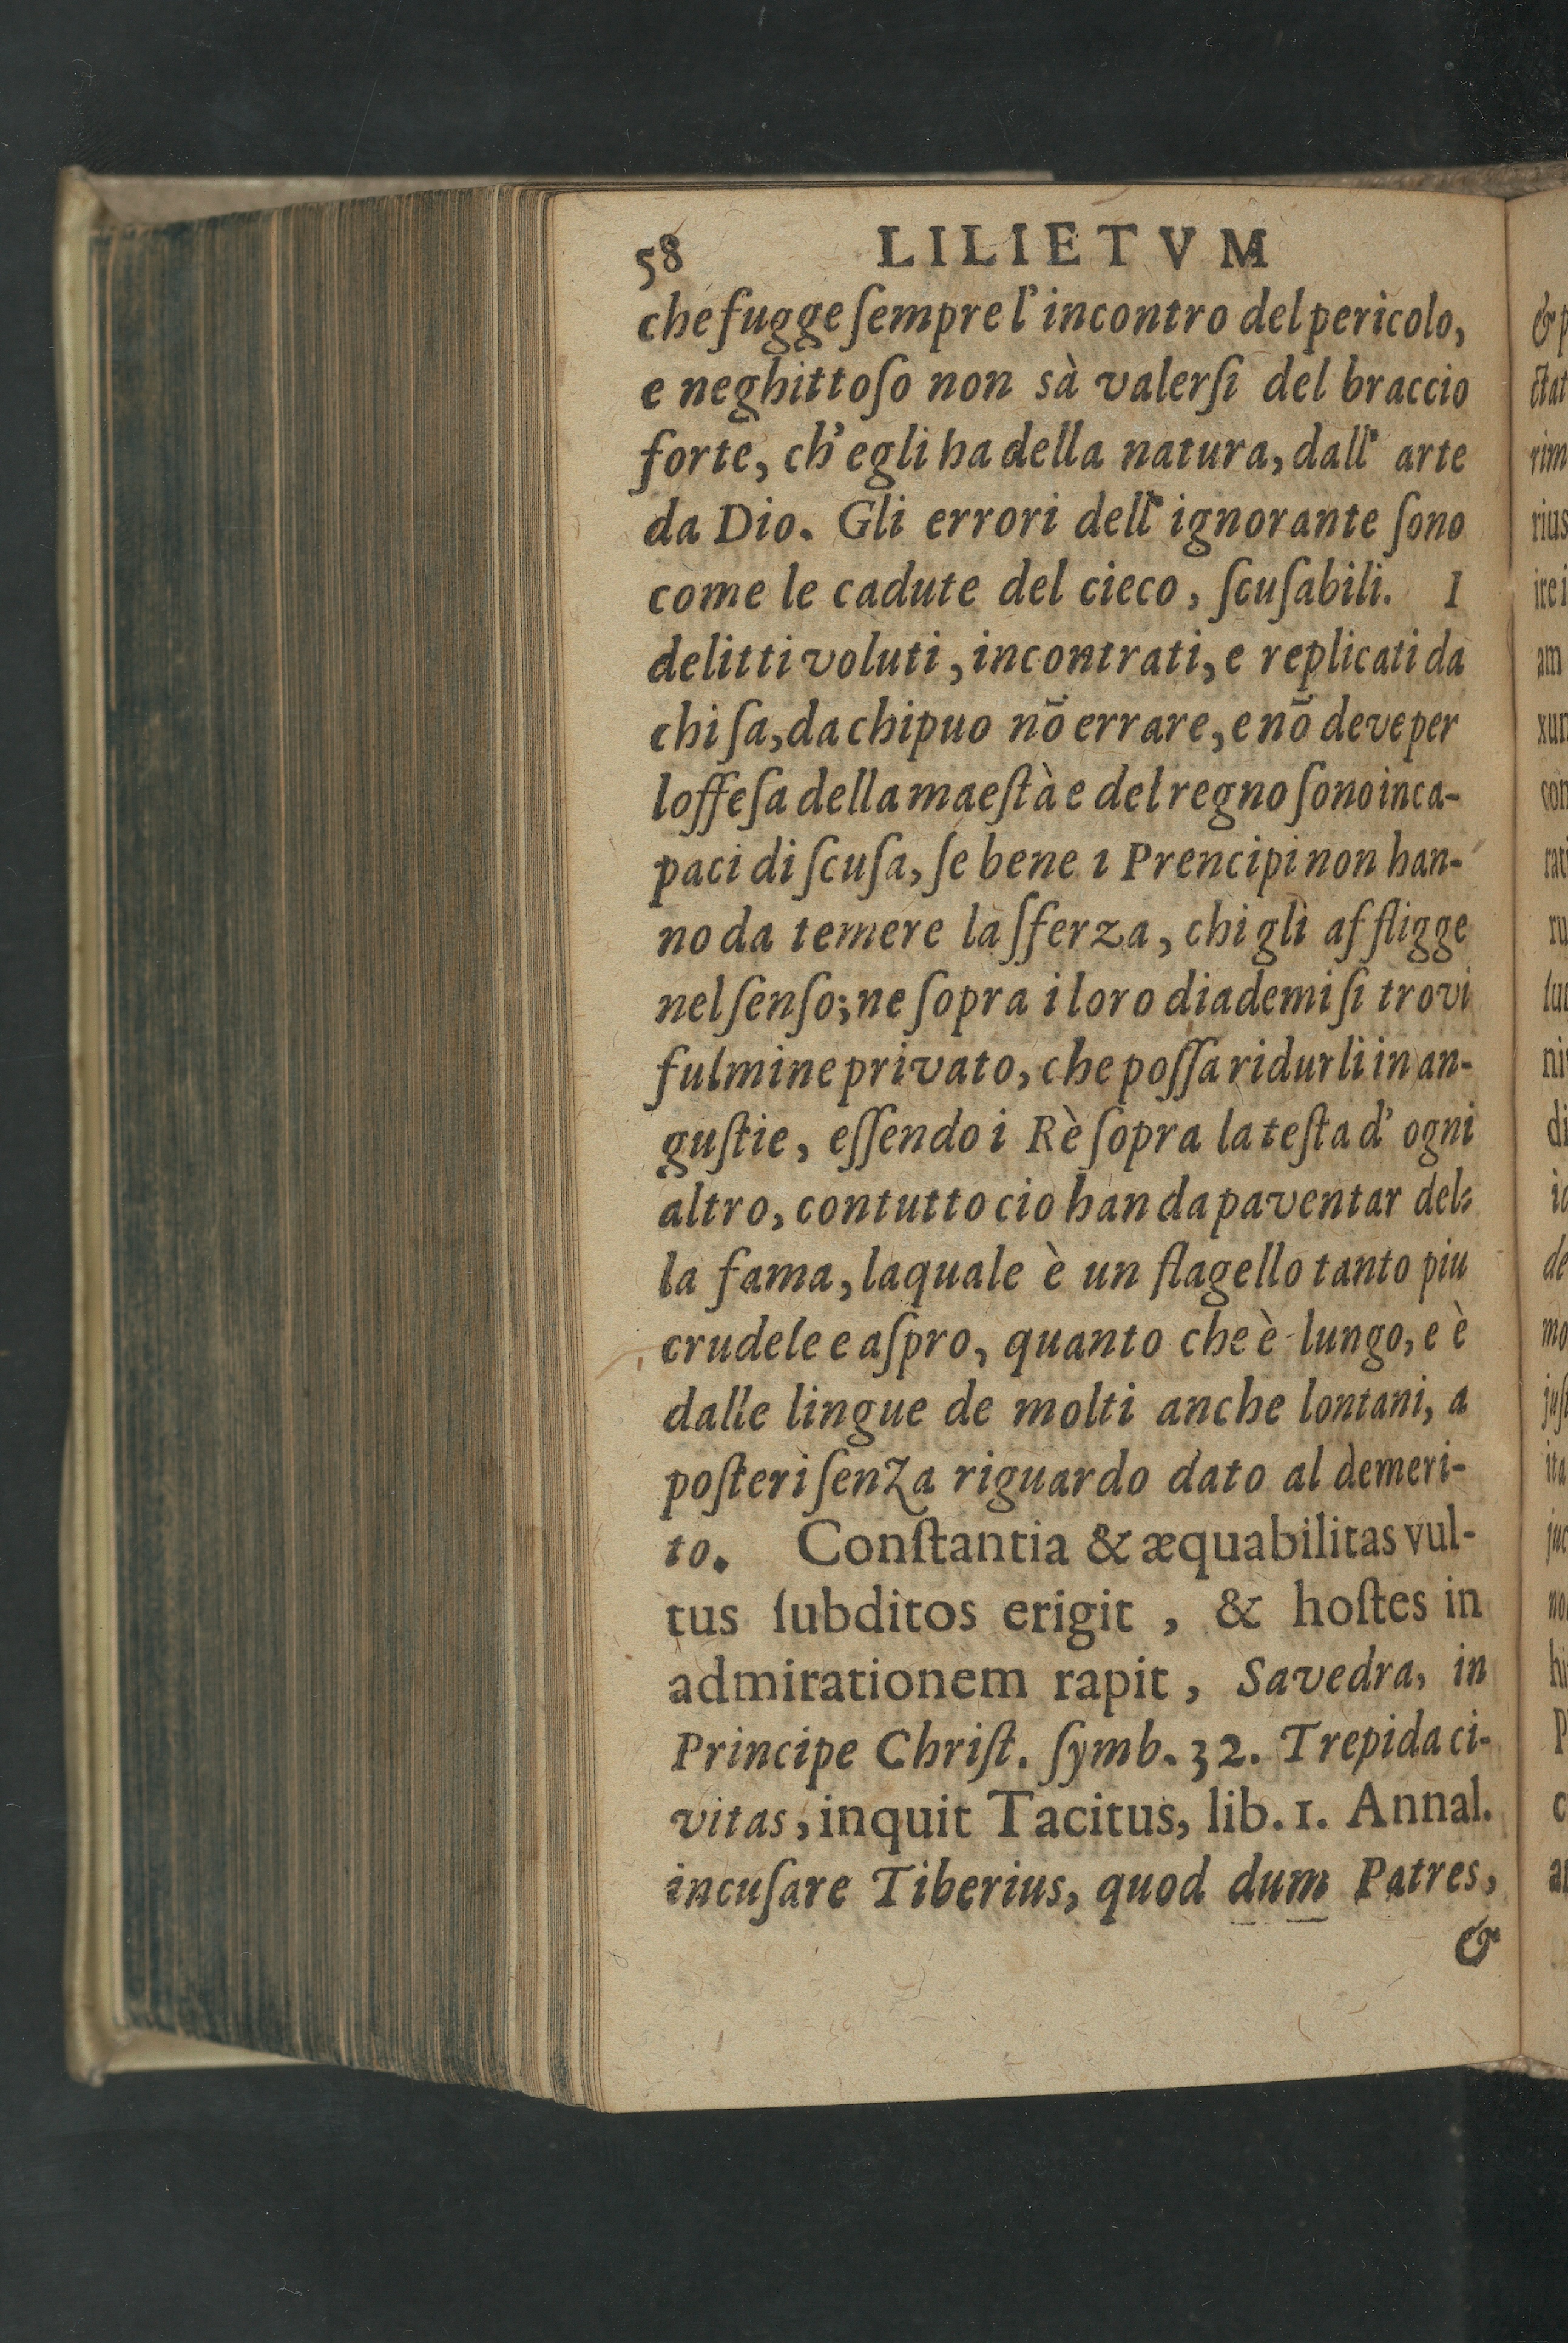 58 LILIETVM
che fugge ſempre l' incontro del pericolo,
e neghittoſo non sà valerſi del braccio
forte, ch' egli ha della natura, dall' arte
da Dio. Gli errori dell' ignorante ſono
come le cadute del cieco, ſcuſabili. I
delitti voluti, incontrati, e replicati da
chi ſa, da chi puo nō errare, e nō deve per
loffeſa della maeſtà e del regno ſono inca-
paci di ſcuſa, ſe bene i Prencipi non han-
no da temere la ſferza, chi gli affligge
nel ſenſo; ne ſopra i loro diademi ſi trovi
fulmine privato, che poſſa ridurli in an-
guſtie, eſſendo i Rè ſopra la teſta d' ogni
altro, contutto cio han da paventar del-
la fama, laquale è un flagello tanto piu
crudele e aſpro, quanto che è lungo, e è
dalle lingue de molti anche lontani, a
poſteri ſenza riguardo dato al demeri-
to. Conſtantia & æquabilitas vul-
tus ſubditos erigit, & hoſtes in
admirationem rapit, Savedra, in
Principe Chriſt. ſymb. 32. Trepida ci-
vitas, inquit Tacitus, lib. 1. Annal.
incuſare Tiberius, quod dum Patres,
&